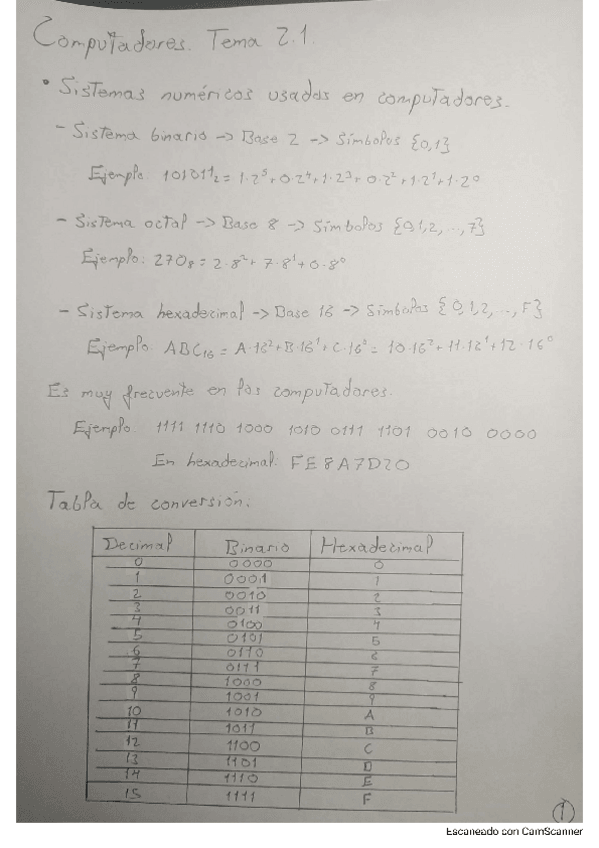 Computadores. Tema 2.1.
• Sistemas numéricos usados en computadores.
- Sistema binario -> Base 2 -> Símbolos {0,1}
Ejemplo: 101011₂ = 1·2⁵+0·2⁴+1·2³+0·2²+1·2¹+1·2⁰
- Sistema octal -> Base 8 -> Símbolos {0,1,2,...,7}
Ejemplo: 270₈ = 2·8²+7·8¹+0·8⁰
- Sistema hexadecimal -> Base 16 -> Símbolos {0,1,2,...,F}
Ejemplo: ABC₁₆ = A·16²+B·16¹+C·16⁰ = 10·16²+11·16¹+12·16⁰
Es muy frecuente en los computadores.
Ejemplo: 1111 1110 1000 1010 0111 1101 0010 0000
En hexadecimal: FE8A7D20
Tabla de conversión.
Decimal Binario Hexadecimal
0 0000 0
1 0001 1
2 0010 2
3 0011 3
4 0100 4
5 0101 5
6 0110 6
7 0111 7
8 1000 8
9 1001 9
10 1010 A
11 1011 B
12 1100 C
13 1101 D
14 1110 E
15 1111 F
1
Escaneado con CamScanner